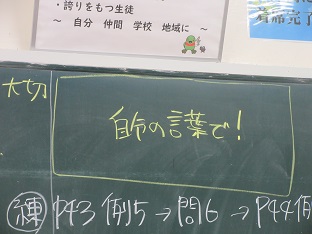 ・誇りをもつ生徒
～ 自分 仲間 学校 地域に ～
着席完了
大切
自分の言葉で！
練 P43 例5 → 問6 → P44 例